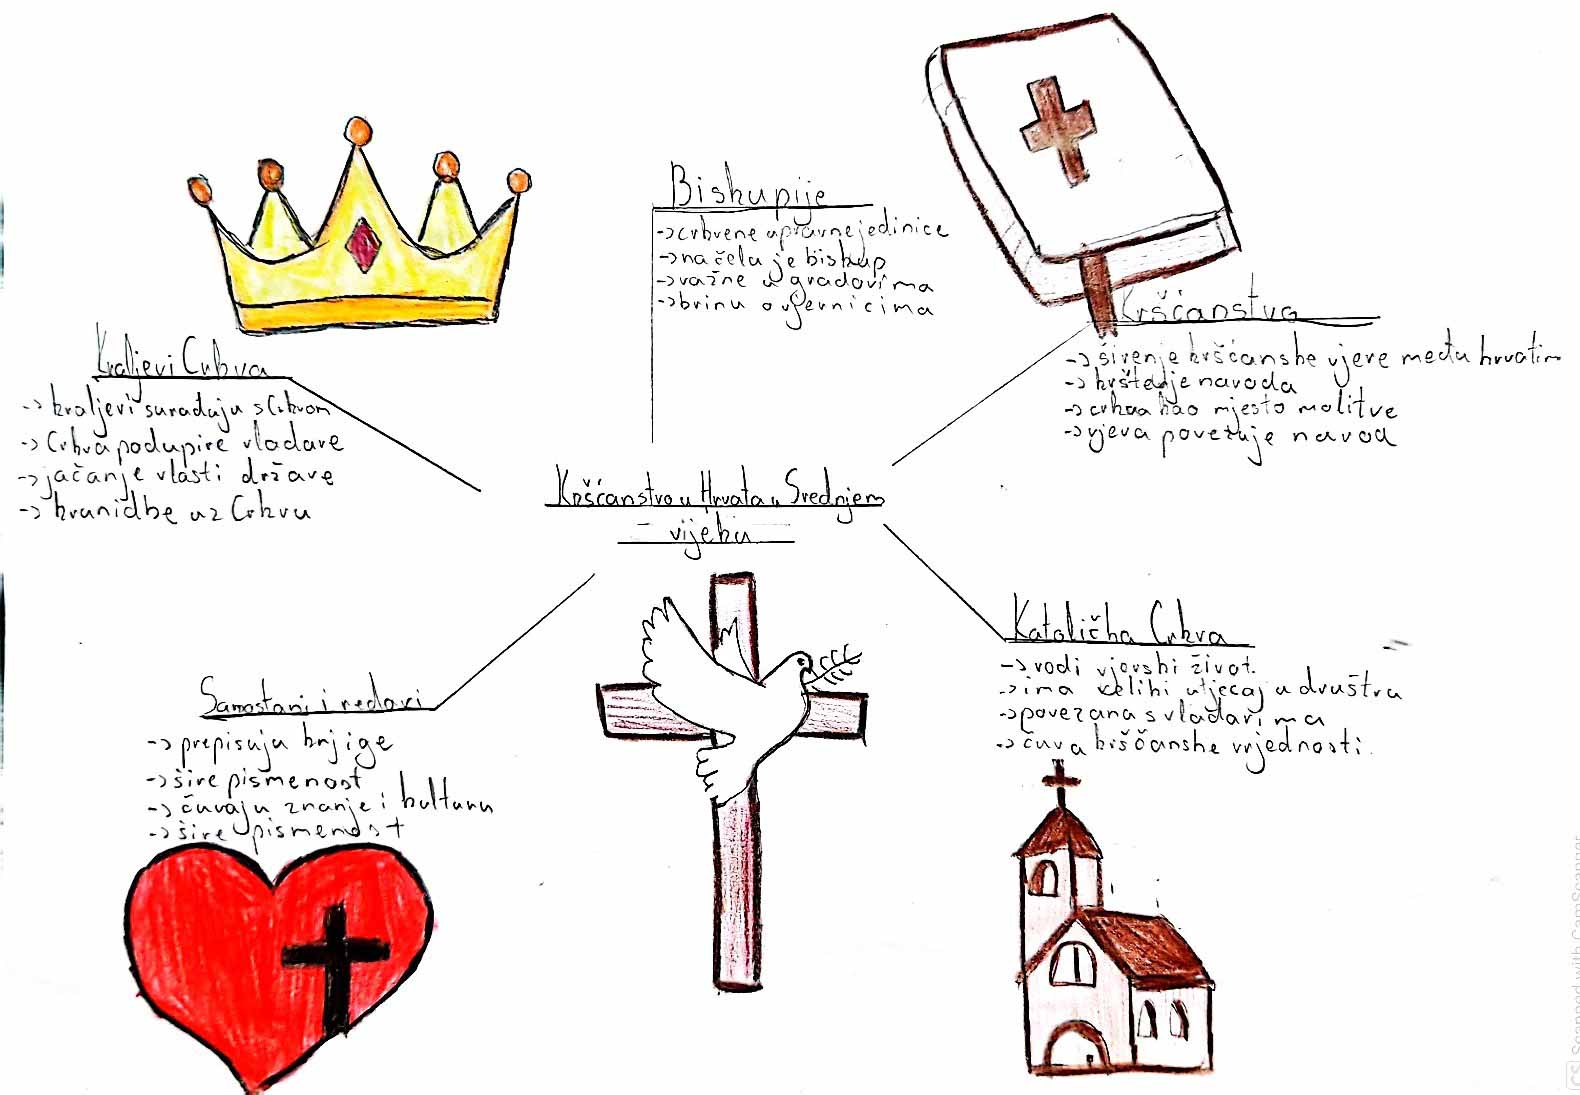 Biskupije
-> crkvene upravne jedinice
-> na čelu je biskup
-> važne u gradovima
-> brinu o vjernicima
Kršćanstvo
-> širenje kršćanske vjere među hrvatim
-> krštenje naroda
-> crkva kao mjesto molitve
-> vjera povezuje narod
Kraljevi Crkva
-> kraljevi surađuju s Crkvom
-> Crkva podupire vladare
-> jačanje vlasti države
-> krunidbe uz Crkvu
Kršćanstvo u Hrvata u Srednjem
vijeku
Katolička Crkva
-> vodi vjerski život.
-> ima veliki utjecaj u društvu
-> povezana s vladarima
-> čuva kišćanske vrijednosti.
Samostani i redovi
-> prepisuju knjige
-> šire pismenost
-> čuvaju znanje i kulturu
-> šire pismenost
CS Scanned with CamScanner